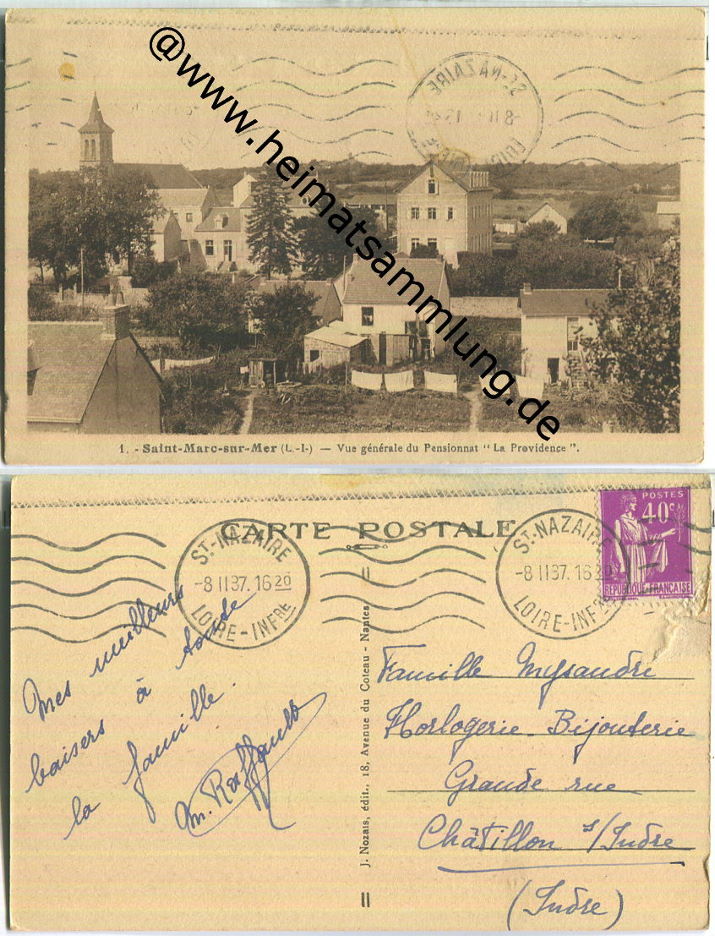 @www.heimatsammlung.de
ST-NAZAIRE
1. - Saint-Marc-sur-Mer (L.-I.) — Vue générale du Pensionnat "La Providence".
CARTE POSTALE
ST-NAZAIRE
-8 II 37. 16 20
LOIRE-INFRE
ST-NAZAIRE
-8 II 37. 16 20
LOIRE-INFRE
POSTES
40c
REPUBLIQUE FRANÇAISE
Mes meilleurs
baisers à toute
la famille.
M. Raffault
J. Nozais, édit., 18, Avenue du Coteau - Nantes
Famille Mysandri
Horlogerie - Bijouterie
Grande rue
Châtillon s/Indre
(Indre)